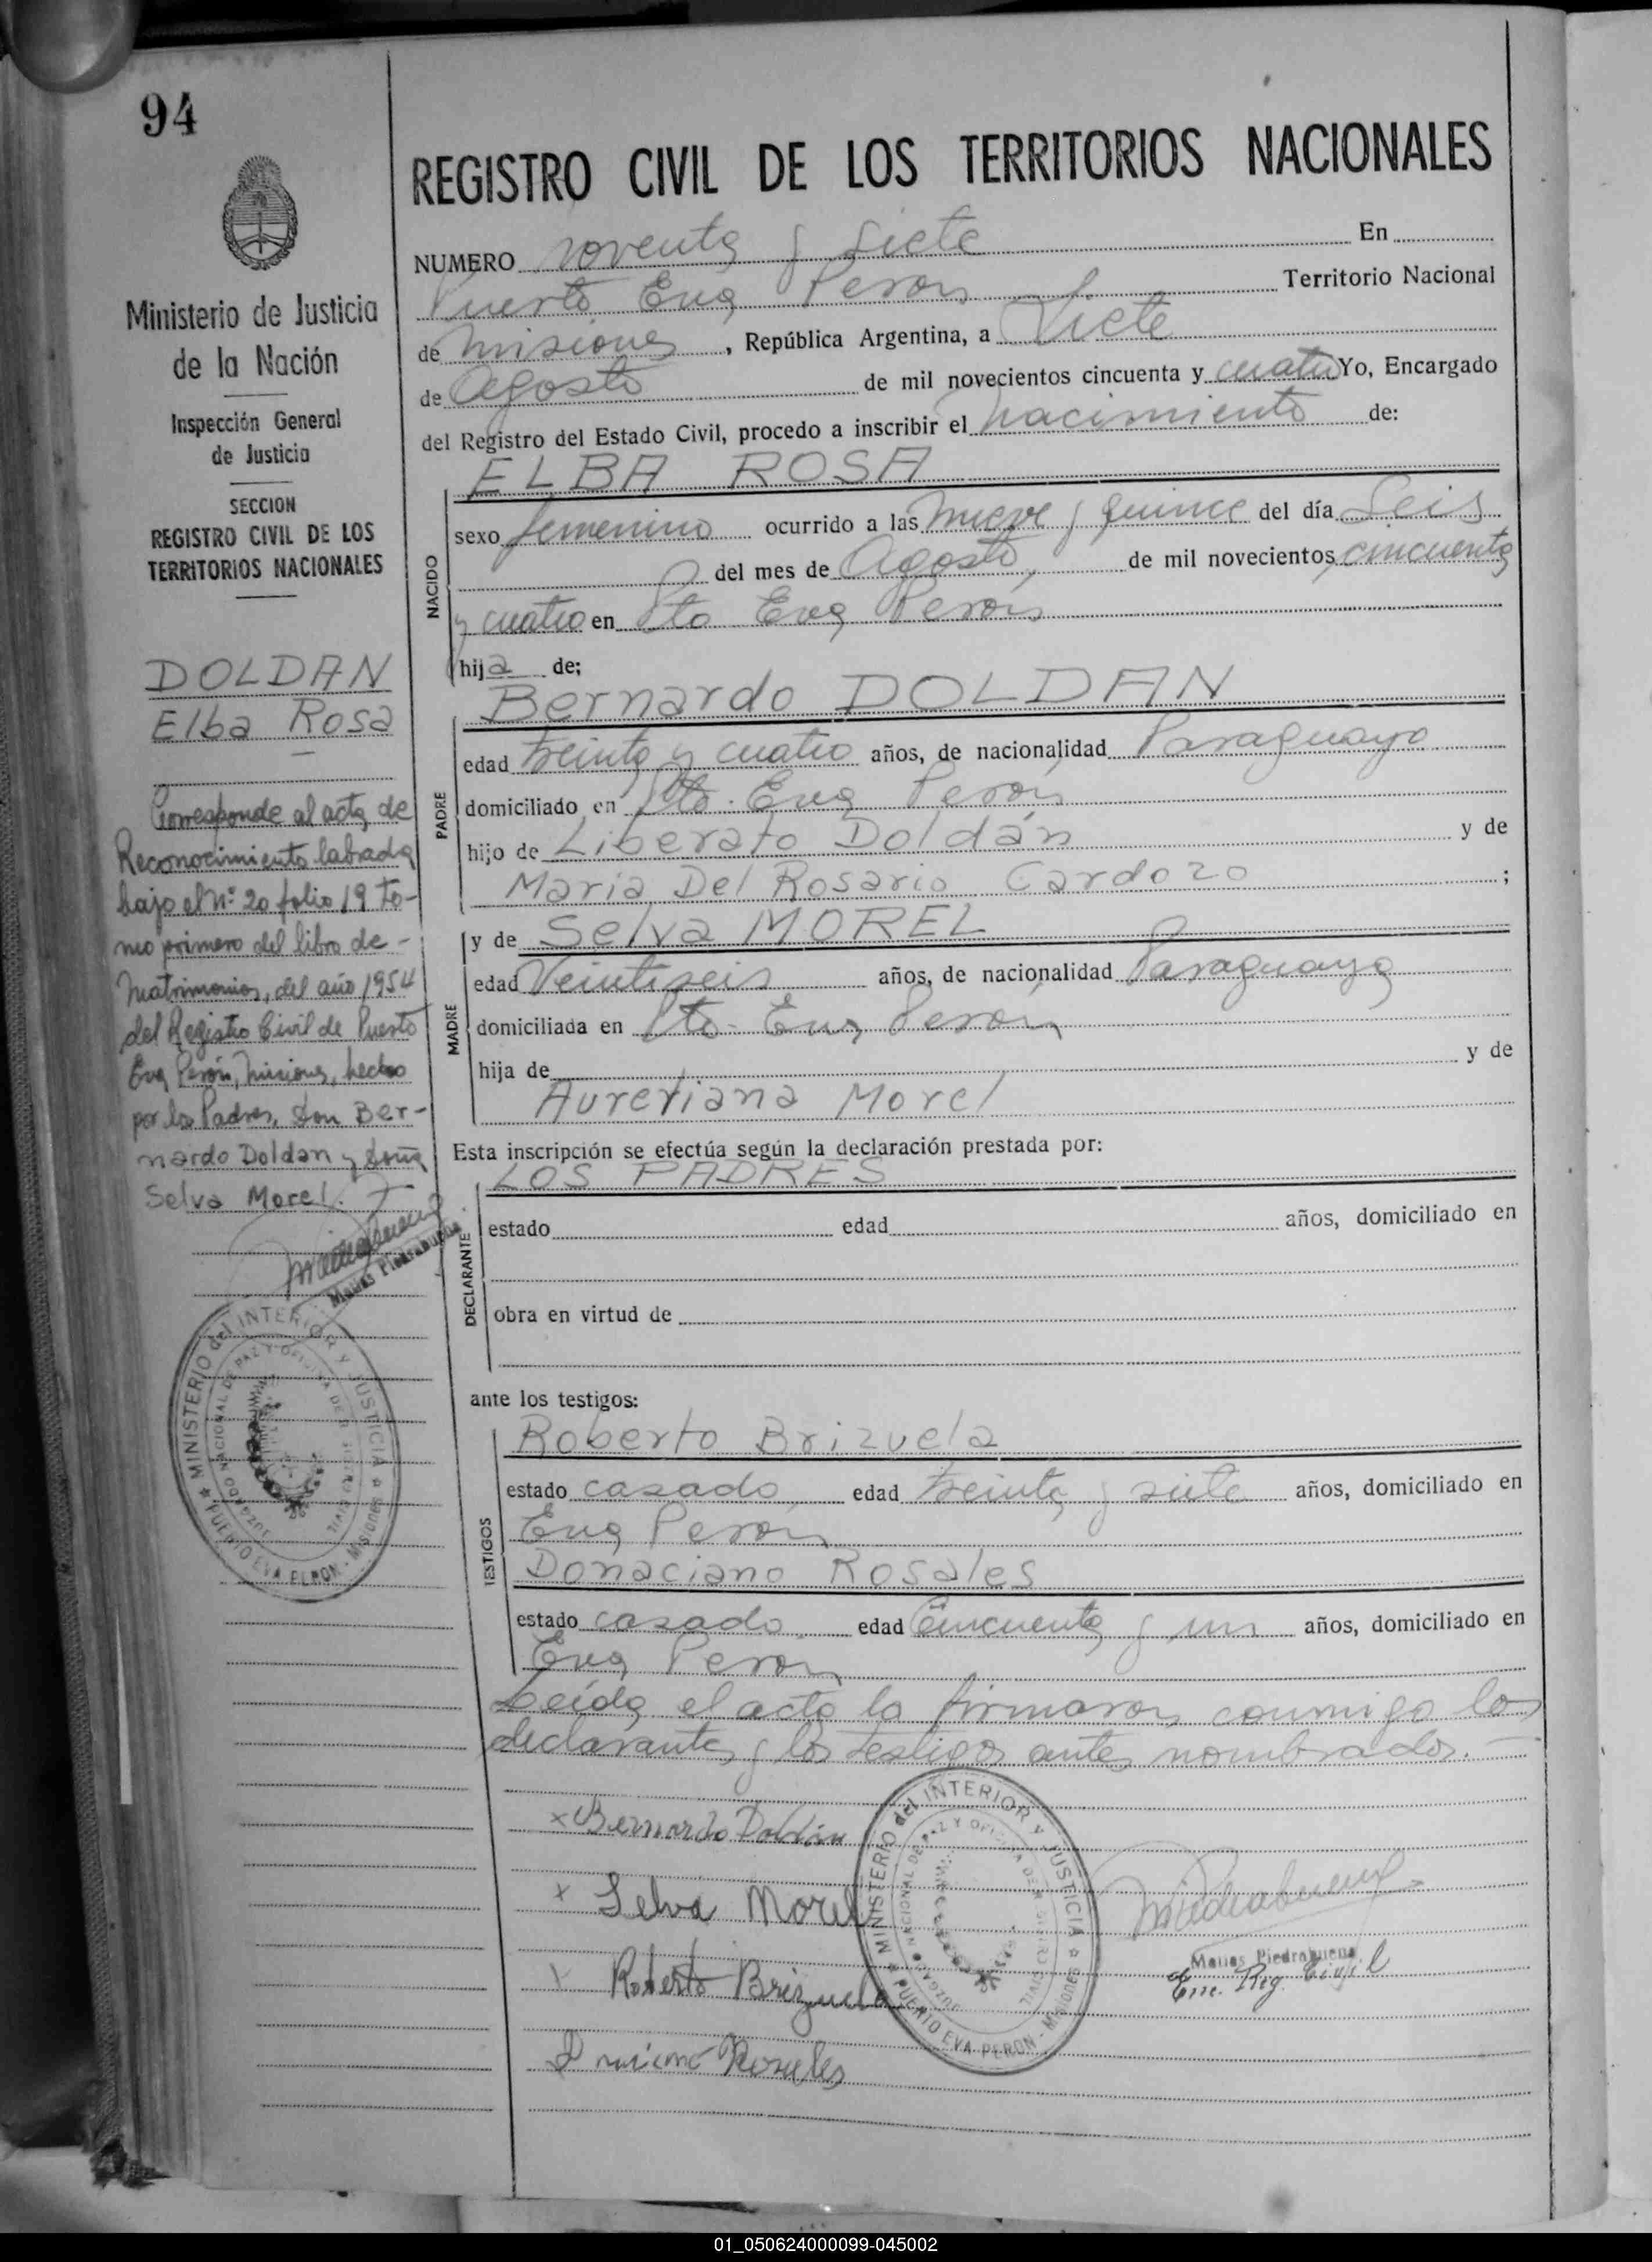 94
Ministerio de Justicia
de la Nación
Inspección General
de Justicia
SECCION
REGISTRO CIVIL DE LOS
TERRITORIOS NACIONALES
DOLDAN
Elba Rosa
Corresponde al acta de
Reconocimiento labrada
bajo el Nº 20 folio 19 to-
mo primero del libro de -
Matrimonios, del año 1954
del Registro Civil de Puerto
Eva Perón, Misiones, hecho
por los Padres, don Ber-
nardo Doldan y doña
Selva Morel.
Matias Piedrabuena
MINISTERIO del INTERIOR Y JUSTICIA
JUZGADO NACIONAL DE PAZ Y OFICINA DE REGISTRO CIVIL
PUERTO EVA PERON - Misiones
REGISTRO CIVIL DE LOS TERRITORIOS NACIONALES
NUMERO noventa y siete En
Puerto Eva Perón Territorio Nacional
de Misiones, República Argentina, a Siete
de Agosto de mil novecientos cincuenta y cuatro Yo, Encargado
del Registro del Estado Civil, procedo a inscribir el nacimiento de:
ELBA ROSA
NACIDO
sexo femenino ocurrido a las nueve y quince del día Seis
del mes de Agosto, de mil novecientos cincuenta
y cuatro en Pto Eva Perón
hija de;
Bernardo DOLDAN
PADRE
edad treinta y cuatro años, de nacionalidad Paraguaya
domiciliado en Pto. Eva Perón
hijo de Liberato Doldán y de
Maria Del Rosario Cardozo ;
y de Selva MOREL
MADRE
edad Veintiseis años, de nacionalidad Paraguaya
domiciliada en Pto. Eva Perón
hija de y de
Aureriana Morel
Esta inscripción se efectúa según la declaración prestada por:
LOS PADRES
DECLARANTE
estado edad años, domiciliado en
obra en virtud de
ante los testigos:
TESTIGOS
Roberto Brizuela
estado casado edad treinta y siete años, domiciliado en
Eva Perón
Donaciano Rosales
estado casado edad Cincuenta y un años, domiciliado en
Eva Perón
Leída el acta la firmaron conmigo los
declarantes y los testigos antes nombrados.
x Bernardo Doldán
x Selva Morel
x Roberto Brizuela
Rosales
MINISTERIO del INTERIOR Y JUSTICIA
JUZGADO NACIONAL DE PAZ Y OFICINA DE REGISTRO CIVIL
PUERTO EVA PERON - Misiones
MPiedrabuena
Matias Piedrabuena
Enc. Reg. Civil
01_050624000099-045002